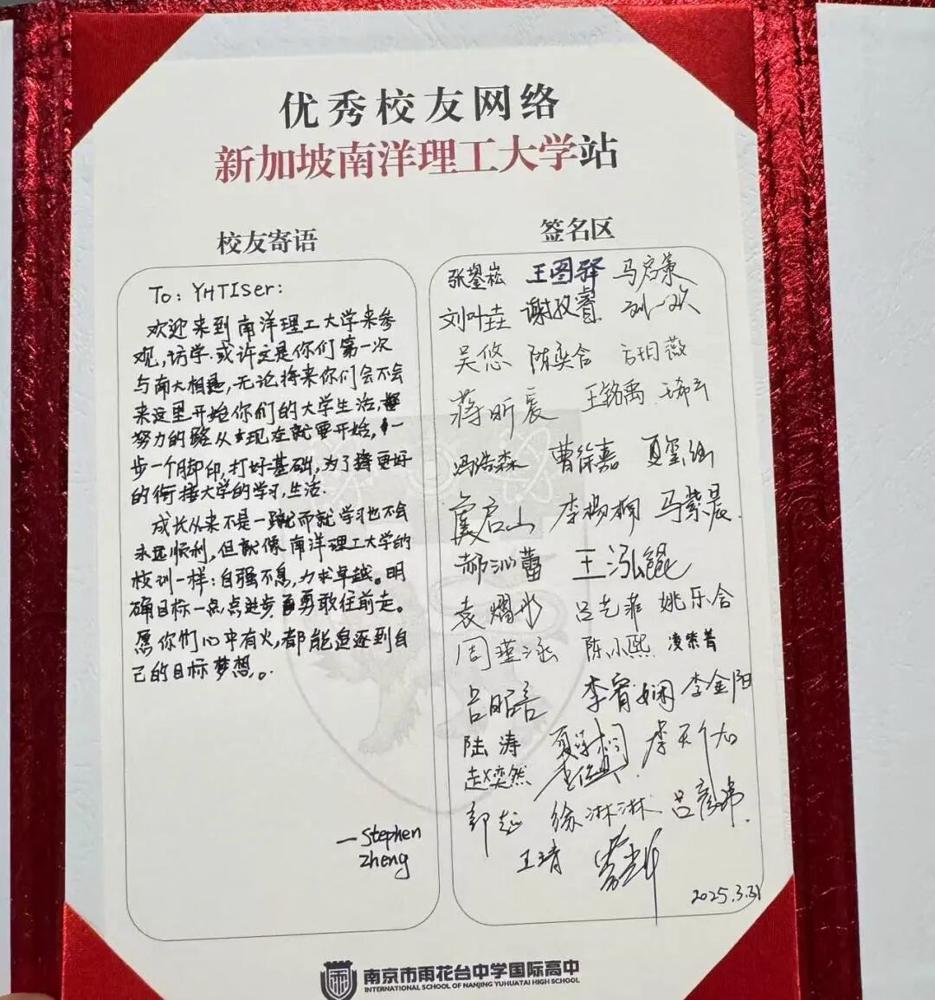 优秀校友网络
新加坡南洋理工大学站
校友寄语
To: YHTISer:
欢迎来到南洋理工大学来参
观,访学.或许这是你们第一次
与南大相遇,无论将来你们会不会
来这里开始你们的大学生活,
努力的路从现在就要开始,一
步一个脚印,打好基础,为了将更好
的衔接大学的学习,生活.
成长从来不是一蹴而就学习也不会
永远顺利,但就像南洋理工大学的
校训一样:自强不息,力求卓越。明
确目标一点点进步勇敢往前走。
愿你们心中有火,都能追逐到自
己的目标梦想。
—Stephen
Zheng
签名区
王图驿 马启策
刘叶垚 谢孜睿 刘一欢
吴悠 陈奕含 方玥薇
蒋昕爰 王铭禹
冯浩森 曹徐嘉
虞启山 李杨桐 马紫晨
郝沁蕾 王泓锟
袁熠彤 吕艺菲 姚乐含
周瑾涵 陈小熙
吕昭言 李睿娴 李金阳
陆涛
赵奕然
郭超 徐淋淋 吕彦沛
王琦
2025.3.31
南京市雨花台中学国际高中
INTERNATIONAL SCHOOL OF NANJING YUHUATAI HIGH SCHOOL